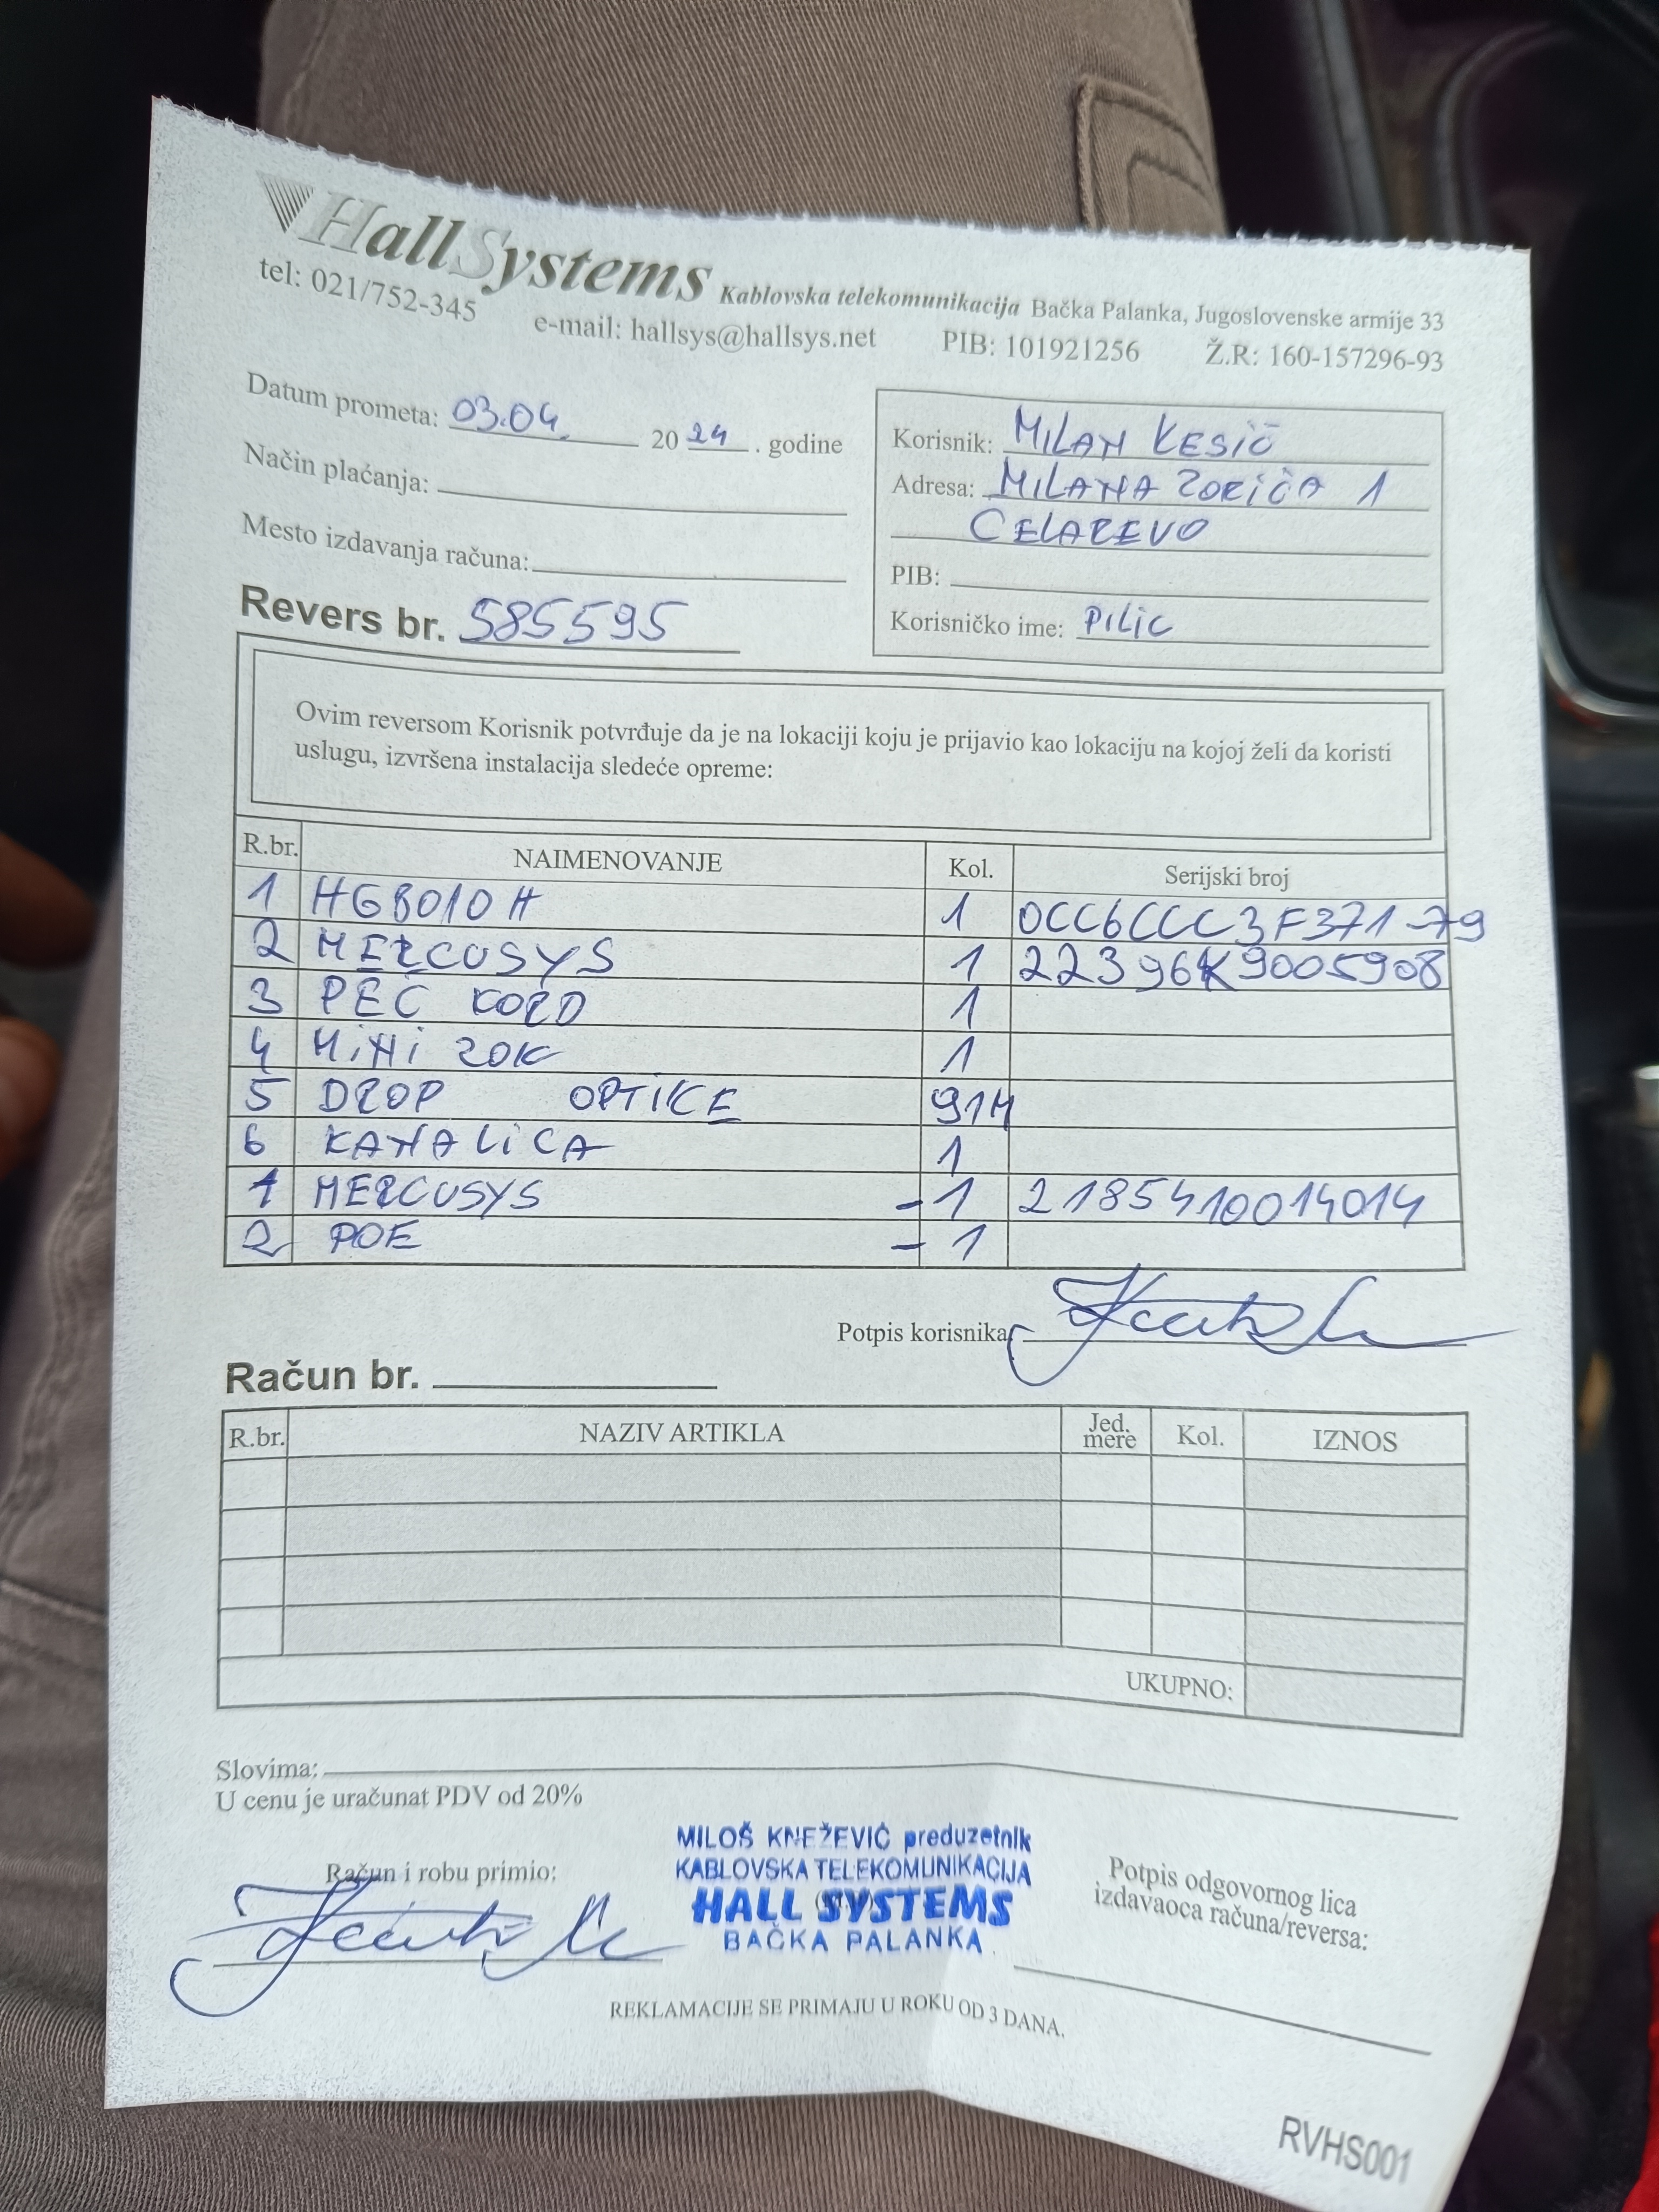 HallSystems Kablovska telekomunikacija Bačka Palanka, Jugoslovenske armije 33
tel: 021/752-345 e-mail: hallsys@hallsys.net PIB: 101921256 Ž.R: 160-157296-93
Datum prometa: 03.04. 2024. godine
Način plaćanja:
Mesto izdavanja računa:
Revers br. 585595
Korisnik: MILAN KESIĆ
Adresa: MILANA ZORIĆA 1
CELAREVO
PIB:
Korisničko ime: PILIC
Ovim reversom Korisnik potvrđuje da je na lokaciji koju je prijavio kao lokaciju na kojoj želi da koristi
uslugu, izvršena instalacija sledeće opreme:
R.br. NAIMENOVANJE Kol. Serijski broj
1 HG8010H 1
2 MERCUSYS 1 22396K9005908
3 PEČ KORD 1
4 MINI ZOK 1
5 DROP OPTIKE 91M
6 KANALICA 1
1 MERCUSYS -1 2185410014014
2 POE -1
Potpis korisnika
Račun br.
R.br. NAZIV ARTIKLA Jed. mere Kol. IZNOS
UKUPNO:
Slovima:
U cenu je uračunat PDV od 20%
Račun i robu primio:
MILOŠ KNEŽEVIĆ preduzetnik
KABLOVSKA TELEKOMUNIKACIJA
HALL SYSTEMS
BAČKA PALANKA
Potpis odgovornog lica
izdavaoca računa/reversa:
REKLAMACIJE SE PRIMAJU U ROKU OD 3 DANA.
RVHS001